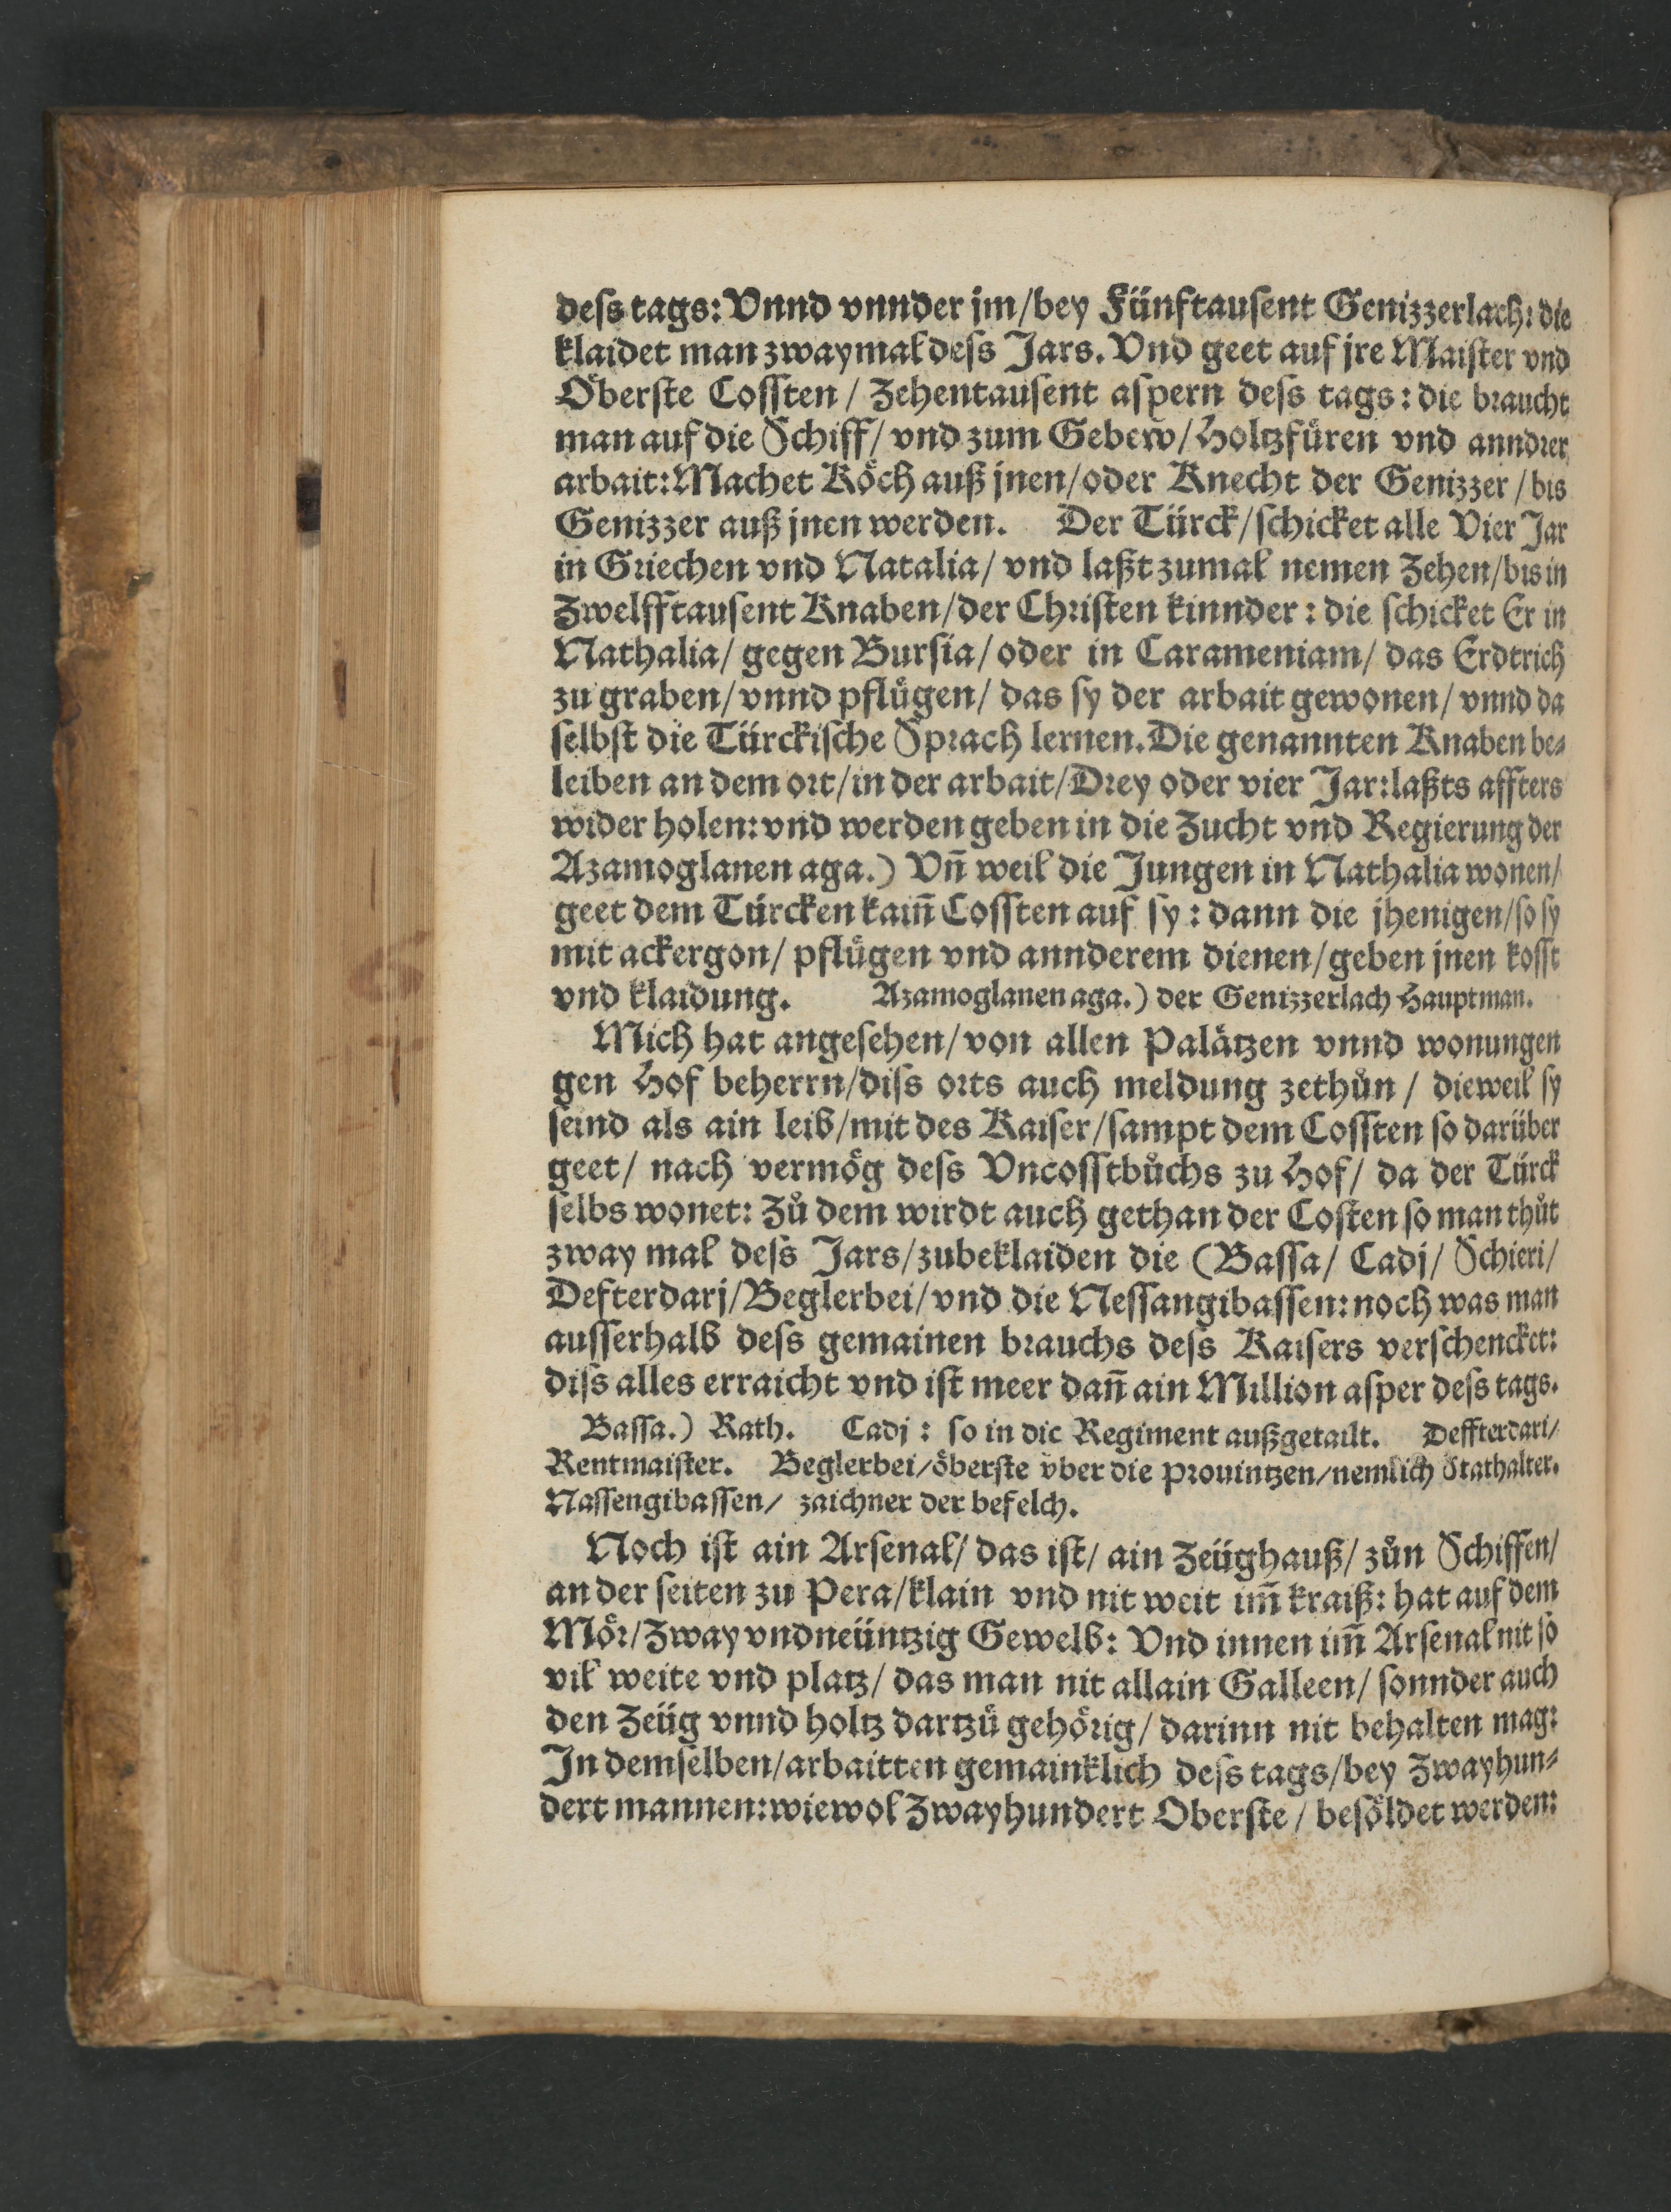 deſs tags: Vnnd vnnder jm/bey Fünftauſent Genizzerlach: die
klaidet man zwaymal deſs Jars. Vnd geet auf jre Maiſter vnd
Öberſte Coſſten / Zehentauſent aſpern deſs tags: die braucht
man auf die Schiff/ vnd zum Gebew/ Holtzfüren vnd anndrer
arbait: Machet Köch auß jnen/oder Knecht der Genizzer / bis
Genizzer auß jnen werden. Der Türck/ſchicket alle Vier Jar
in Griechen vnd Natalia/ vnd laßt zumal nemen Zehen/bis in
Zwelfftauſent Knaben/der Chriſten kinnder: die ſchicket Er in
Nathalia/ gegen Burſia/ oder in Carameniam/ das Erdtrich
zu graben/ vnnd pflügen/ das ſy der arbait gewonen/ vnnd da
ſelbſt die Türckiſche Sprach lernen. Die genannten Knaben be⸗
leiben an dem ort/in der arbait/Drey oder vier Jar: laßts affters
wider holen: vnd werden geben in die Zucht vnd Regierung der
Azamoglanen aga.) Vn̄ weil die Jungen in Nathalia wonen/
geet dem Türcken kain̄ Coſſten auf ſy: dann die jhenigen/ſo ſy
mit ackergon/ pflügen vnd annderem dienen/geben jnen koſſt
vnd klaidung. Azamoglanen aga.) der Genizzerlach Hauptman.
Mich hat angeſehen/von allen Palätzen vnnd wonungen
gen Hof beherrn/diſs orts auch meldung zethůn / dieweil ſy
ſeind als ain leib/mit des Kaiſer/ſampt dem Coſſten ſo darüber
geet/ nach vermög deſs Vncoſſtbůchs zu Hof/ da der Türck
ſelbs wonet: Zů dem wirdt auch gethan der Coſten ſo man thůt
zway mal deſs Jars/zubeklaiden die (Baſſa/ Cadj/ Schieri/
Defterdarj/Beglerbei/vnd die Neſſangibaſſen: noch was man
auſſerhalb deſs gemainen brauchs deſs Kaiſers verſchencket:
diſs alles erraicht vnd iſt meer dan̄ ain Million aſper deſs tags.
Baſſa.) Rath. Cadj: ſo in die Regiment außgetailt. Deffterdari/
Rentmaiſter. Beglerbei/öberſte vber die Prouintzen/nemlich Stathalter.
Naſſengibaſſen/ zaichner der befelch.
Noch iſt ain Arſenal/ das iſt/ ain Zeüghauß/ zůn Schiffen/
an der ſeiten zu Pera/klain vnd nit weit im̄ kraiß: hat auf dem
Mör/Zway vndneüntzig Gewelb: Vnd innen im̄ Arſenal nit ſo
vil weite vnd platz/ das man nit allain Galleen/ ſonnder auch
den Zeüg vnnd holtz dartzů gehörig/ darinn nit behalten mag:
In demſelben/arbaitten gemainklich deſs tags/bey Zwayhun⸗
dert mannen: wiewol Zwayhundert Oberſte / beſöldet werden: